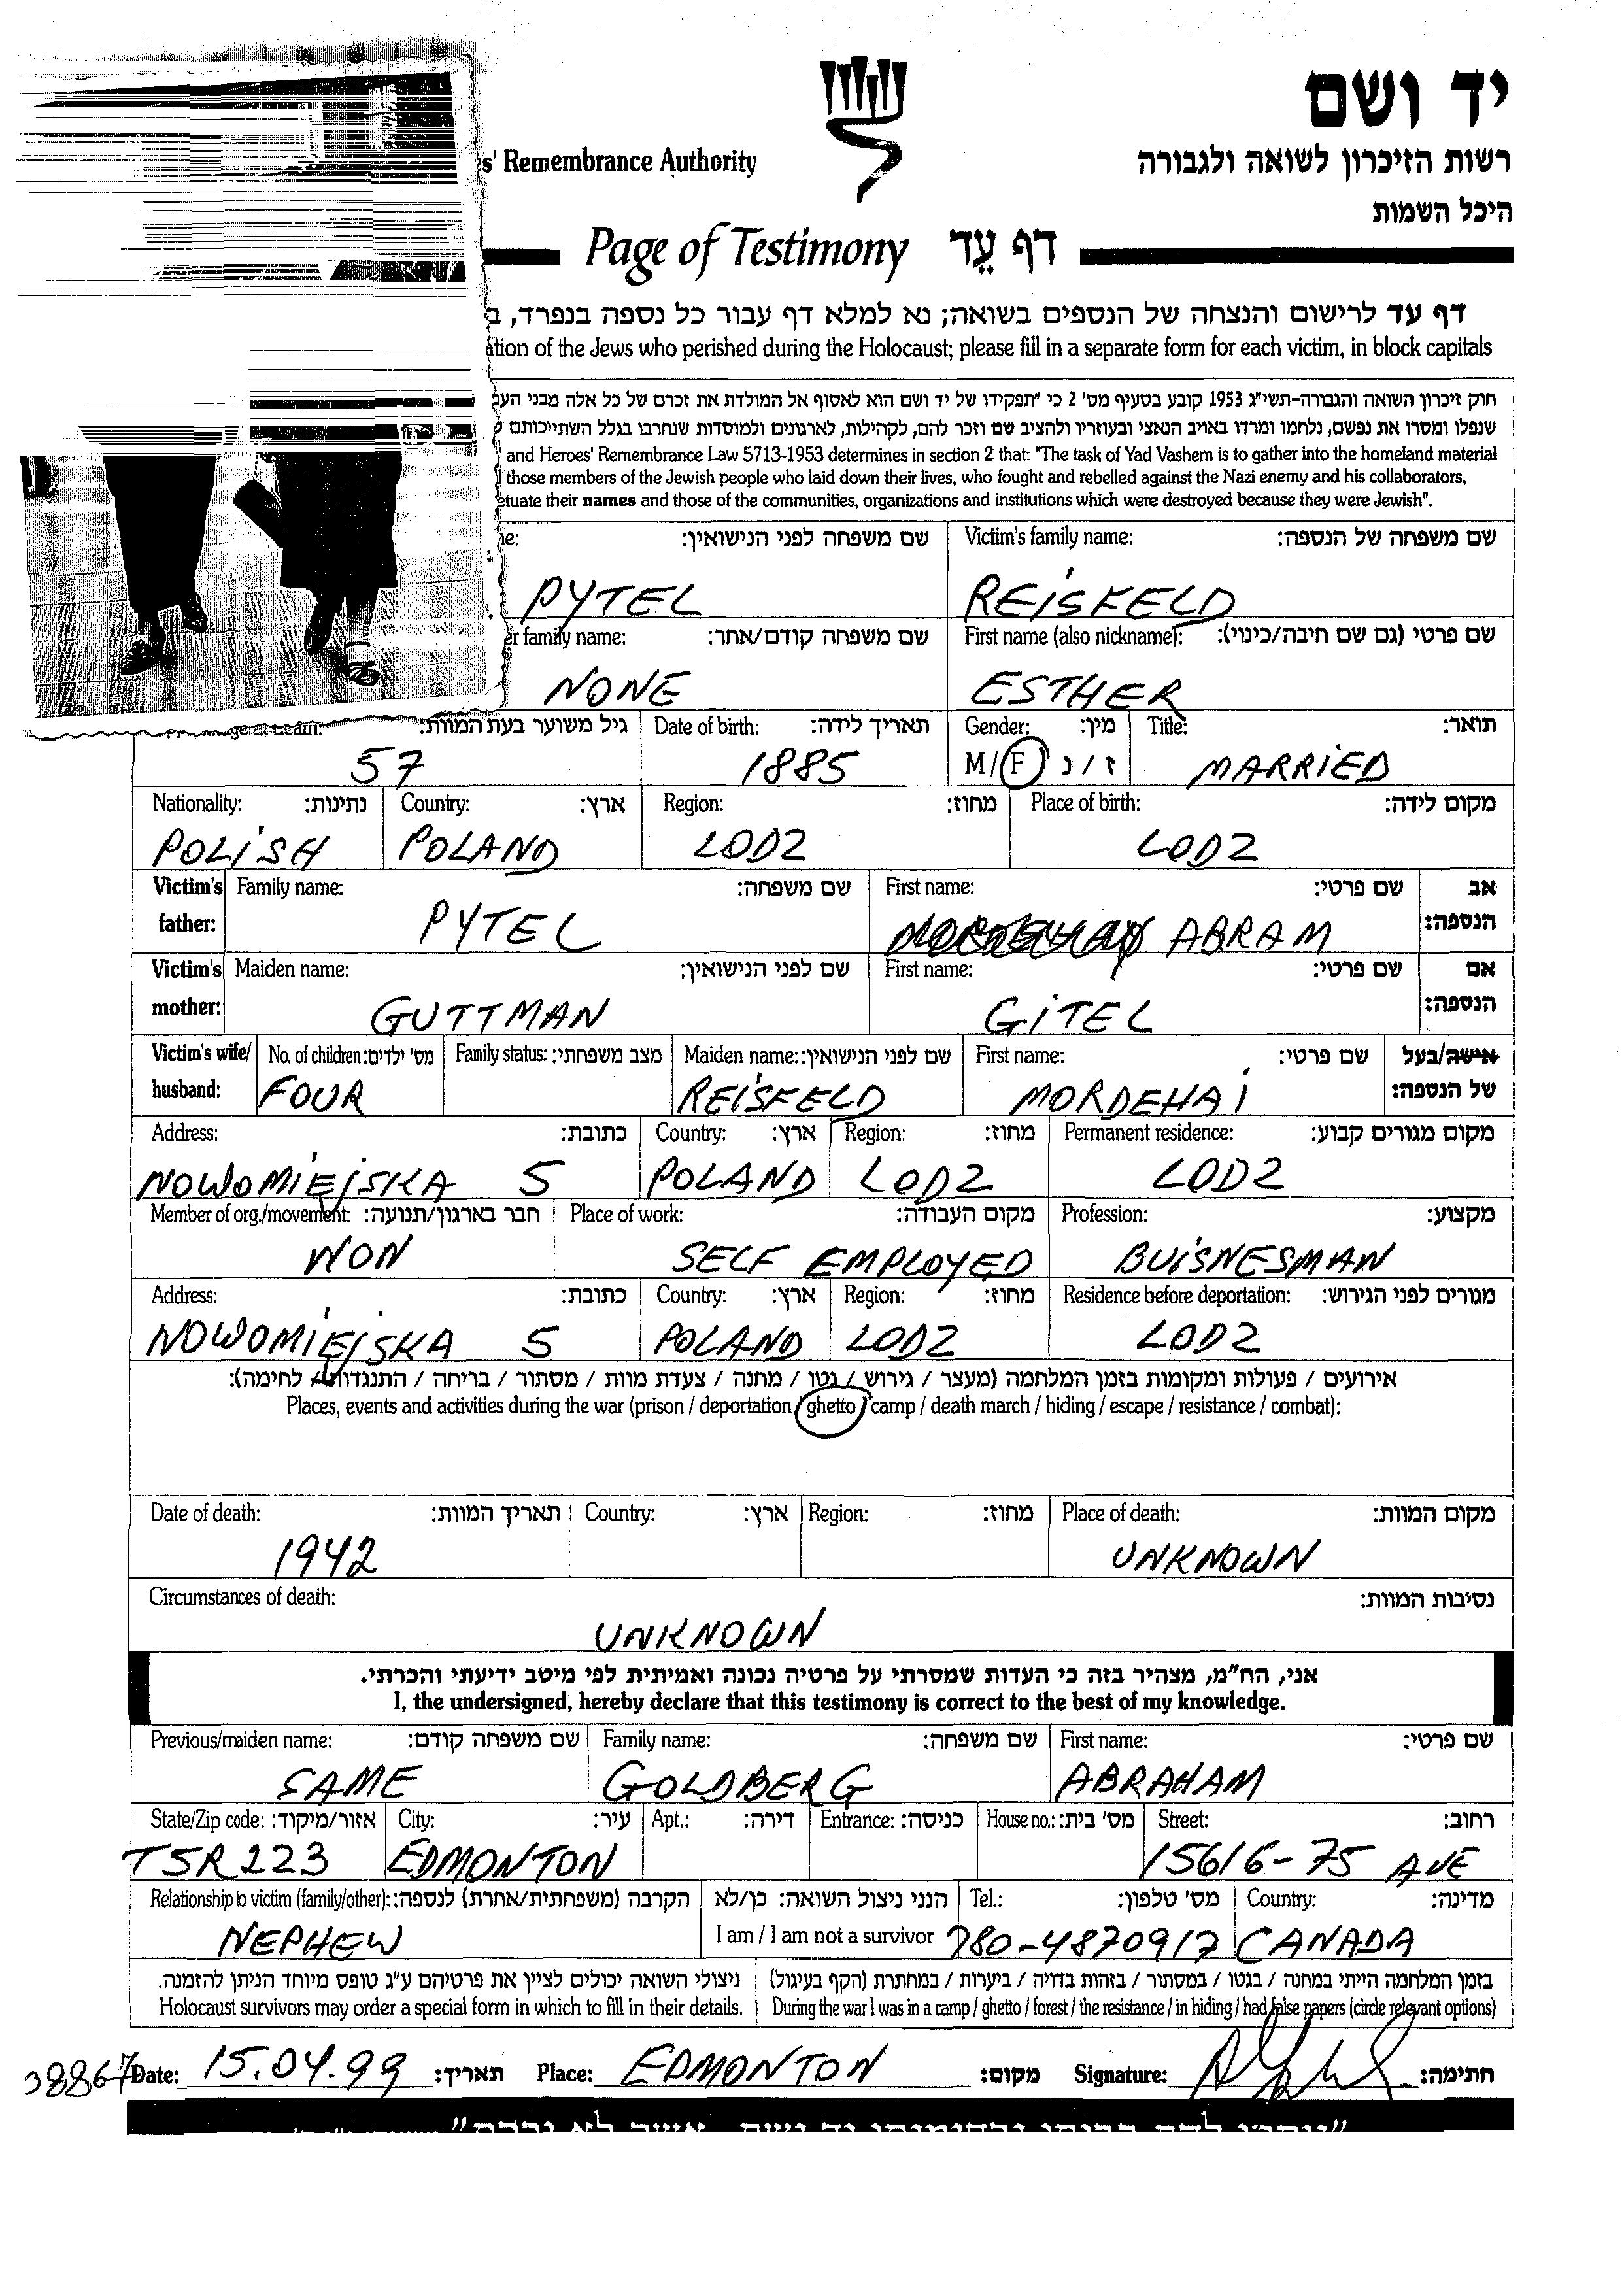 יד ושם
רשות הזיכרון לשואה ולגבורה
היכל השמות
Remembrance Authority
Page of Testimony דף עד
דף עד לרישום והנצחה של הנספים בשואה; נא למלא דף עבור כל נספה בנפרד,
of the Jews who perished during the Holocaust; please fill in a separate form for each victim, in block capitals
חוק זיכרון השואה והגבורה-תשי"ג 1953 קובע בסעיף מס' 2 כי "תפקידו של יד ושם הוא לאסוף אל המולדת את זכרם של כל אלה מבני
שנפלו ומסרו את נפשם, נלחמו ומרדו באויב הנאצי ובעוזריו ולהציב שם וזכר להם, לקהילות, לארגונים ולמוסדות שנחרבו בגלל השתייכותם
and Heroes' Remembrance Law 5713-1953 determines in section 2 that: "The task of Yad Vashem is to gather into the homeland material
those members of the Jewish people who laid down their lives, who fought and rebelled against the Nazi enemy and his collaborators,
their names and those of the communities, organizations and institutions which were destroyed because they were Jewish".
שם משפחה לפני הנישואין: Victim's family name: שם משפחה של הנספה:
PYTEL REISFELD
family name: שם משפחה קודם/אחר: First name (also nickname): שם פרטי (גם שם חיבה/כינוי):
NONE ESTHER
גיל משוער בעת המוות: Date of birth: תאריך לידה: Gender: מין: Title: תואר:
57 1885 M/F ז/נ MARRIED
Nationality: נתינות: Country: ארץ: Region: מחוז: Place of birth: מקום לידה:
POLISH POLAND LODZ LODZ
Victim's father: Family name: שם משפחה: First name: שם פרטי: אב הנספה:
PYTEL ABRAM
Victim's mother: Maiden name: שם לפני הנישואין: First name: שם פרטי: אם הנספה:
GUTTMAN GITEL
Victim's wife/husband: No. of children: מס' ילדים: Family status: מצב משפחתי: Maiden name: שם לפני הנישואין: First name: שם פרטי: אישה/בעל של הנספה:
FOUR REISFELD MORDEHAI
Address: כתובת: Country: ארץ: Region: מחוז: Permanent residence: מקום מגורים קבוע:
NOWOMIEJSKA 5 POLAND LODZ LODZ
Member of org./movement: חבר בארגון/תנועה: Place of work: מקום העבודה: Profession: מקצוע:
NON SELF EMPLOYED BUISNESMAN
Address: כתובת: Country: ארץ: Region: מחוז: Residence before deportation: מגורים לפני הגירוש:
NOWOMIEJSKA 5 POLAND LODZ LODZ
אירועים / פעולות ומקומות בזמן המלחמה (מעצר / גירוש / גטו / מחנה / צעדת מוות / מסתור / בריחה / התנגדות / לחימה):
Places, events and activities during the war (prison / deportation / ghetto / camp / death march / hiding / escape / resistance / combat):
Date of death: תאריך המוות: Country: ארץ: Region: מחוז: Place of death: מקום המוות:
1942 UNKNOWN
Circumstances of death: נסיבות המוות:
UNKNOWN
אני, הח"מ, מצהיר בזה כי העדות שמסרתי על פרטיה נכונה ואמיתית לפי מיטב ידיעתי והכרתי.
I, the undersigned, hereby declare that this testimony is correct to the best of my knowledge.
Previous/maiden name: שם משפחה קודם: Family name: שם משפחה: First name: שם פרטי:
SAME GOLDBERG ABRAHAM
State/Zip code: אזור/מיקוד: City: עיר: Apt.: דירה: Entrance: כניסה: House no.: מס' בית: Street: רחוב:
T5R223 EDMONTON 15616-75 AVE
Relationship to victim (family/other): הקרבה (משפחתית/אחרת) לנספה: הנני ניצול השואה: כן/לא Tel.: מס' טלפון: Country: מדינה:
NEPHEW I am / I am not a survivor 780-4870917 CANADA
ניצולי השואה יכולים לציין את פרטיהם ע"ג טופס מיוחד הניתן להזמנה. בזמן המלחמה הייתי במחנה / בגטו / במסתור / בזהות בדויה / ביערות / במחתרת (הקף בעיגול)
Holocaust survivors may order a special form in which to fill in their details. During the war I was in a camp / ghetto / forest / the resistance / in hiding / had false papers (circle relevant options)
38867 Date: 15.04.99 תאריך: Place: EDMONTON מקום: Signature: חתימה: